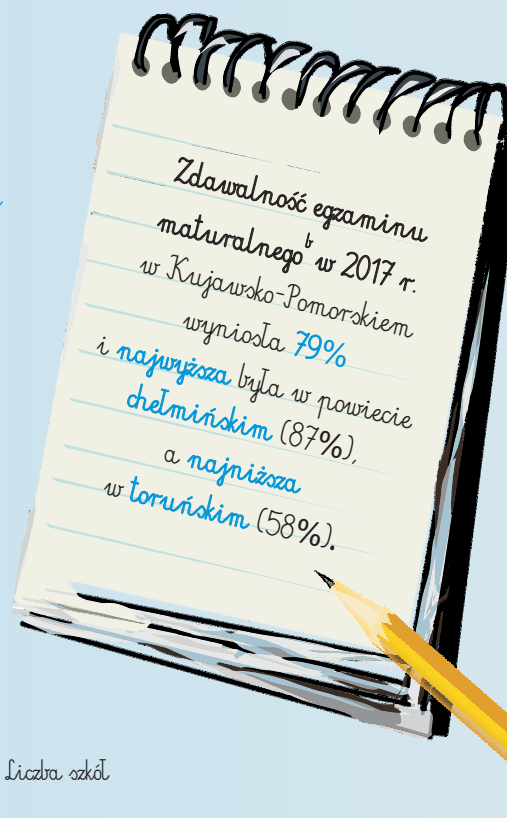 Zdawalność egzaminu
maturalnego b w 2017 r.
w Kujawsko-Pomorskiem
wyniosła 79%
i najwyższa była w powiecie
chełmińskim (87%),
a najniższa
w toruńskim (58%).
Liczba szkół